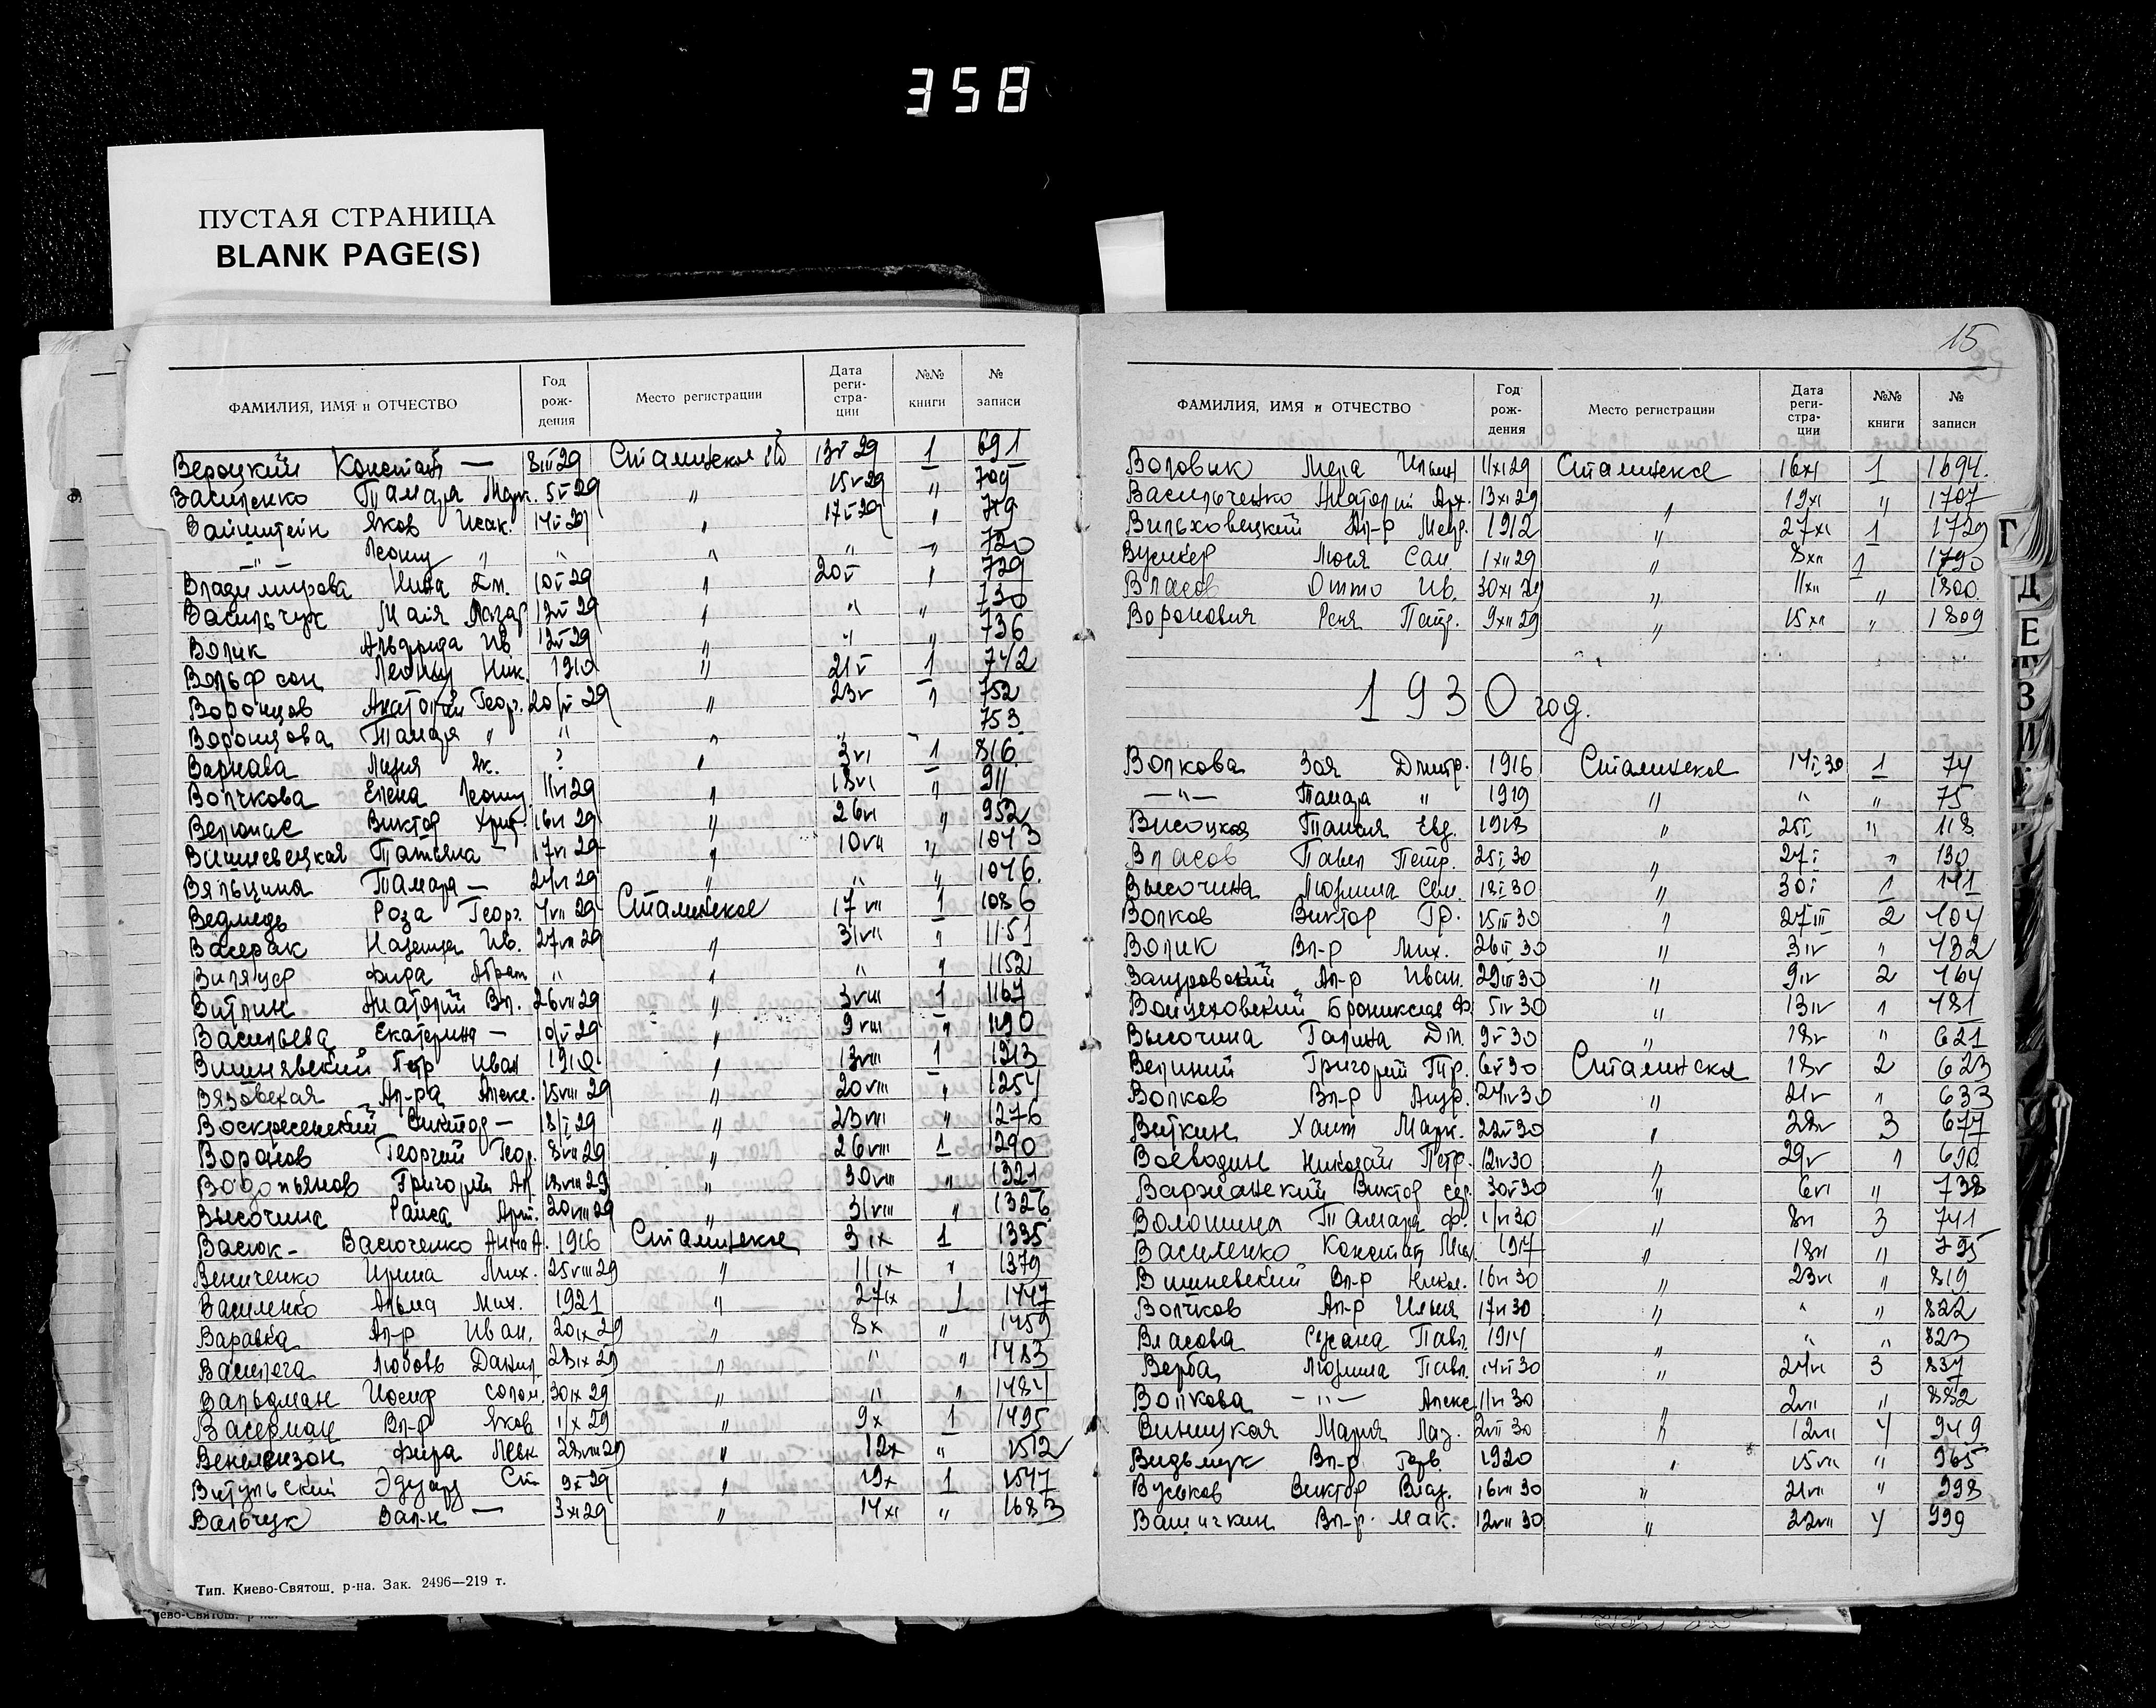 358
ПУСТАЯ СТРАНИЦА
BLANK PAGE(S)
ФАМИЛИЯ, ИМЯ и ОТЧЕСТВО Год рождения Место регистрации Дата регистрации №№ книги № записи
Вероцкий Констант — 8III29 Сталинское 13V29 1 691
Василенко Тамара Марк. 5V29 " 15V29 " 709
Вайнштейн Яков Исак. 14V29 " 17V29 " 719
—"— Леонид " " " " " 720
Владимирова Нина 10V29 " 20V " 729
Васильчук Майя Лазар 13V29 " " " 730
Волик Альфрида Ив. 12V29 " " " 736
Вольфсон Леонид Ник. 1910 " 21V 1 742
Воронцов Анатолий Георг. 20IV29 " 23V " 752
Воронцова Тамара " " " " " 753
Варнава Лидия Як. ? " 3VI 1 816
Волчкова Елена Леонид. 11VI29 " 18VI " 911
Виктор 16VI29 " 26VI " 952
Вишневецкая Татьяна — 17VI29 " 10VII " 1043
Вяльцина Тамара — 24VI29 " " " 1046.
Ведмедь Роза Георг. 4VII29 Сталинское 17VII 1 1086
Васерак Надежда Ив. 27VII29 " 31VII " 1151
Фира Абрам " " " " 1152
Витлин Анатолий Вл. 26VII29 " 3VIII 1 1167
Васильева Екатерина — 29 " 9VIII " 1190
Вишнявский Петр Иван 1910 " 13VIII 1 1213
Вязовская Ал-ра Алекс. 15VIII29 " 20VIII " 1254
Воскресенский Виктор — 29 " 23VIII " 1276
Воронов Георгий Геор. 8VII29 " 26VIII 1 1290
Водопьянов Григорий Ал. 18VIII29 " 30VIII " 1321
Высочина Раиса Арт. 20VIII29 " 31VIII " 1326
Васюк- Васюченко Анна А. 1916 Сталинское 3IX 1 1335
Вениченко Ирина Мих. 25VIII29 " 11IX " 1379
Василенко Альма Мих. 1921 " 27IX 1 1447
Варавка Ал-р Иван. 20IX29 " 8X " 1459
Вашлега Любовь Данил 28IX29 " " " 1483
Вальдман Иосиф Солом. 30IX29 " " " 1484
Васерман Вл-р Яков 1X29 " 9X 1 1495
Фира 28VIII29 " 12X " 1512
Витульский Эдуард Ст 9X29 " 19X 1 1547
Вальчук Вал-н — 3XI29 " 14XI " 1683
Тип. Киево-Святош. р-на. Зак. 2496—219 т.
15
ФАМИЛИЯ, ИМЯ и ОТЧЕСТВО Год рождения Место регистрации Дата регистрации №№ книги № записи
Воловик Мера Ильин 11XI29 Сталинское 16XI 1 1694.
Васильченко Анатолий Арх. 13XI29 " 19XI " 1707
Вильховецкий Ал-р Петр. 1912 " 27XI 1 1729
Люся Сам. 1XII29 " 8XII 1 1790
Власов Отто Ив. 30XI29 " 11XII " 1800.
Воронович Реня Петр. 9XII29 " 15XII " 1809
1930 год.
Волкова Зоя Дмитр. 1916 Сталинское 14I30 1 74
—"— Тамара " 1919 " " " 75
Висоцкая Таисия Евд. 1918 " 25I " 118
Власов Павел Петр. 25I30 " 27I " 130
Высочина Людмила Сем. 18I30 " 30I 1 141
Волков Виктор Гр. 15III30 " 27III 2 404
Волик Вл-р Мих. 26II30 " 3IV " 432
Ал-р Иван. 29III30 " 9IV 2 464
Войцеховский Бронислав Ф. 5IV30 " 13IV " 481
Высочина Галина Дм. 9V30 " 18V " 621
Велиний Григорий Гр. 6V30 Сталинское 18V 2 623
Волков Вл-р Андр. 24IV30 " 21V " 633
Виткин Хаит Марк. 22V30 " 28V 3 677
Воеводин Николай Петр. 12IV30 " 29V " 690
Варжанский Виктор Сер. 30V30 " 6VI " 738
Волошина Тамара Ф. 1VI30 " 8VI 3 741
Василенко Констант 1917 " 18VI " 795
Вишневский Вл-р Никол. 16VI30 " 23VI " 819
Волчков Ал-р Ильич 17VI30 " " " 822
Власова Сусана Павл. 1914 " " " 823
Верба Людмила Павл. 14VI30 " 24VI 3 837
Волкова —"— Алекс 11VI30 " 2VII " 882
Виницкая Мария Лаз. 2VII30 " 12VII 4 949
Видьмук Вл-р 1920 " 15VII " 965
Вуськов Виктор Влад. 16VII30 " 21VII " 998
Вашичкин Вл-р. Мак. 12VII30 " 22VII 4 999
Г
Д
Е
Ж
З
И